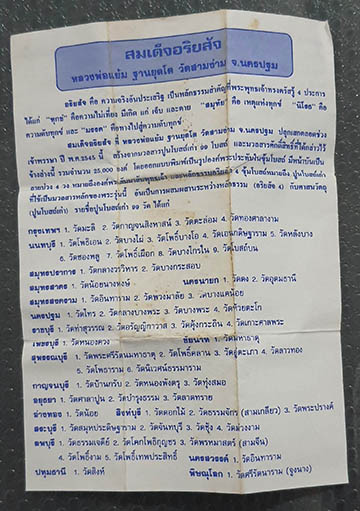 สมเด็จอริยสัจ
หลวงพ่อแย้ม ฐานยุตโต วัดสามง่าม จ.นครปฐม
อริยสัจ คือ ความจริงอันประเสริฐ เป็นหลักธรรมสำคัญที่พระพุทธเจ้าทรงตรัสรู้ 4 ประการ
ได้แก่ "ทุกข์" คือความไม่เที่ยง มีเกิด แก่ เจ็บ และตาย "สมุทัย" คือ เหตุแห่งทุกข์ "นิโรธ" คือ
ความดับทุกข์ และ "มรรค" คือทางไปสู่ความดับทุกข์
สมเด็จอริยสัจ นี้ หลวงพ่อแย้ม ฐานยุตโต วัดสามง่าม จ.นครปฐม ปลุกเสกตลอดช่วง
เข้าพรรษา ปี พ.ศ.2545 นี้ สร้างจากมวลสารปูนใบสอเก่า 99 วัด และมวลสารศักดิ์สิทธิ์ที่ได้กล่าวไว้
ข้างล่างนี้ รวมจำนวน 25,000 องค์ โดยออกแบบพิมพ์เป็นรูปองค์พระประทับในซุ้มใบสอ มีหน้าบันเป็น
ลายปวง 4 วง
ที่ใช้เป็นมวลสารหลักของพระรุ่นนี้ อันเป็นการผสมผสานระหว่างหลักธรรม (อริยสัจ 4) กับศาสนวัตถุ
(ปูนใบสอเก่า) รายชื่อปูนใบสอเก่า 99 วัด ได้แก่
กรุงเทพฯ 1. วัดมะลิ 2. วัดกาญจนสิงหาสน์ 3. วัดตะล่อม 4. วัดทองศาลางาม
นนทบุรี 1. วัดโพธิ์เอน 2. วัดบางไผ่ 3. วัดโพธิ์บางโอ 4. วัดเอนกดิษฐาราม 5. วัดหลังบาง
6. วัดซองพลู 7. วัดโพธิ์เผือก 8. วัดบางไกรใน 9. วัดโบสถ์บน
สมุทรปราการ 1. วัดกลางวรวิหาร 2. วัดบางกระสอบ
สมุทรสาคร 1. วัดน้อยนางหงษ์ นครนายก 1. วัดดง 2. วัดอุดมธานี
สมุทรสงคราม 1. วัดอินทาราม 2. วัดพวงมาลัย 3. วัดบางแคน้อย
นครปฐม 1. วัดไทร 2. วัดกลางบางพระ 4. วัดห้วยตะโก
ราชบุรี 1. วัดท่าสุวรรณ 2. วัดอริญญิกาวาส 3. วัดคุ้งกระถิน 4. วัดเกาะศาลพระ
เพชรบุรี 1. วัดหนองควง ชัยนาท 1. วัดมหาธาตุ
สุพรรณบุรี 1. วัดพระศรีรัตนมหาธาตุ 2. วัดโพธิ์คลาน 3. วัดอู่ตะเภา 4. วัดลาวทอง
5. วัดโพธาราม 6. วัดนิเวศน์ธรรมาราม
กาญจนบุรี 1. วัดบ้านกรับ 2. วัดหนองพังตรุ 3. วัดทุ่งสมอ
อยุธยา 1. วัดศาลาปูน 2. วัดบำรุงธรรม 3. วัดลาดทราย
อ่างทอง 1. วัดน้อย สิงห์บุรี 1. วัดดอกไม้ 2. วัดธรรมจักร (สามเกลียว) 3. วัดพระปรางค์
สระบุรี 1. วัดสมุหประดิษฐาราม 2. วัดจันทบุรี 3. วัดซุ้ง 4. วัดม่วงงาม
ลพบุรี 1. วัดธรรมเจดีย์ 2. วัดโคกโพธิกุญชร 3. วัดพรหมาสตร์ (สามจีน)
4. วัดโพธิ์งาม 5. วัดโพธิ์เทพประสิทธิ์ นครสวรรค์ 1. วัดอินทาราม
ปทุมธานี 1. วัดสิงห์ พิษณุโลก 1. วัดศรีรัตนาราม (จูงนาง)